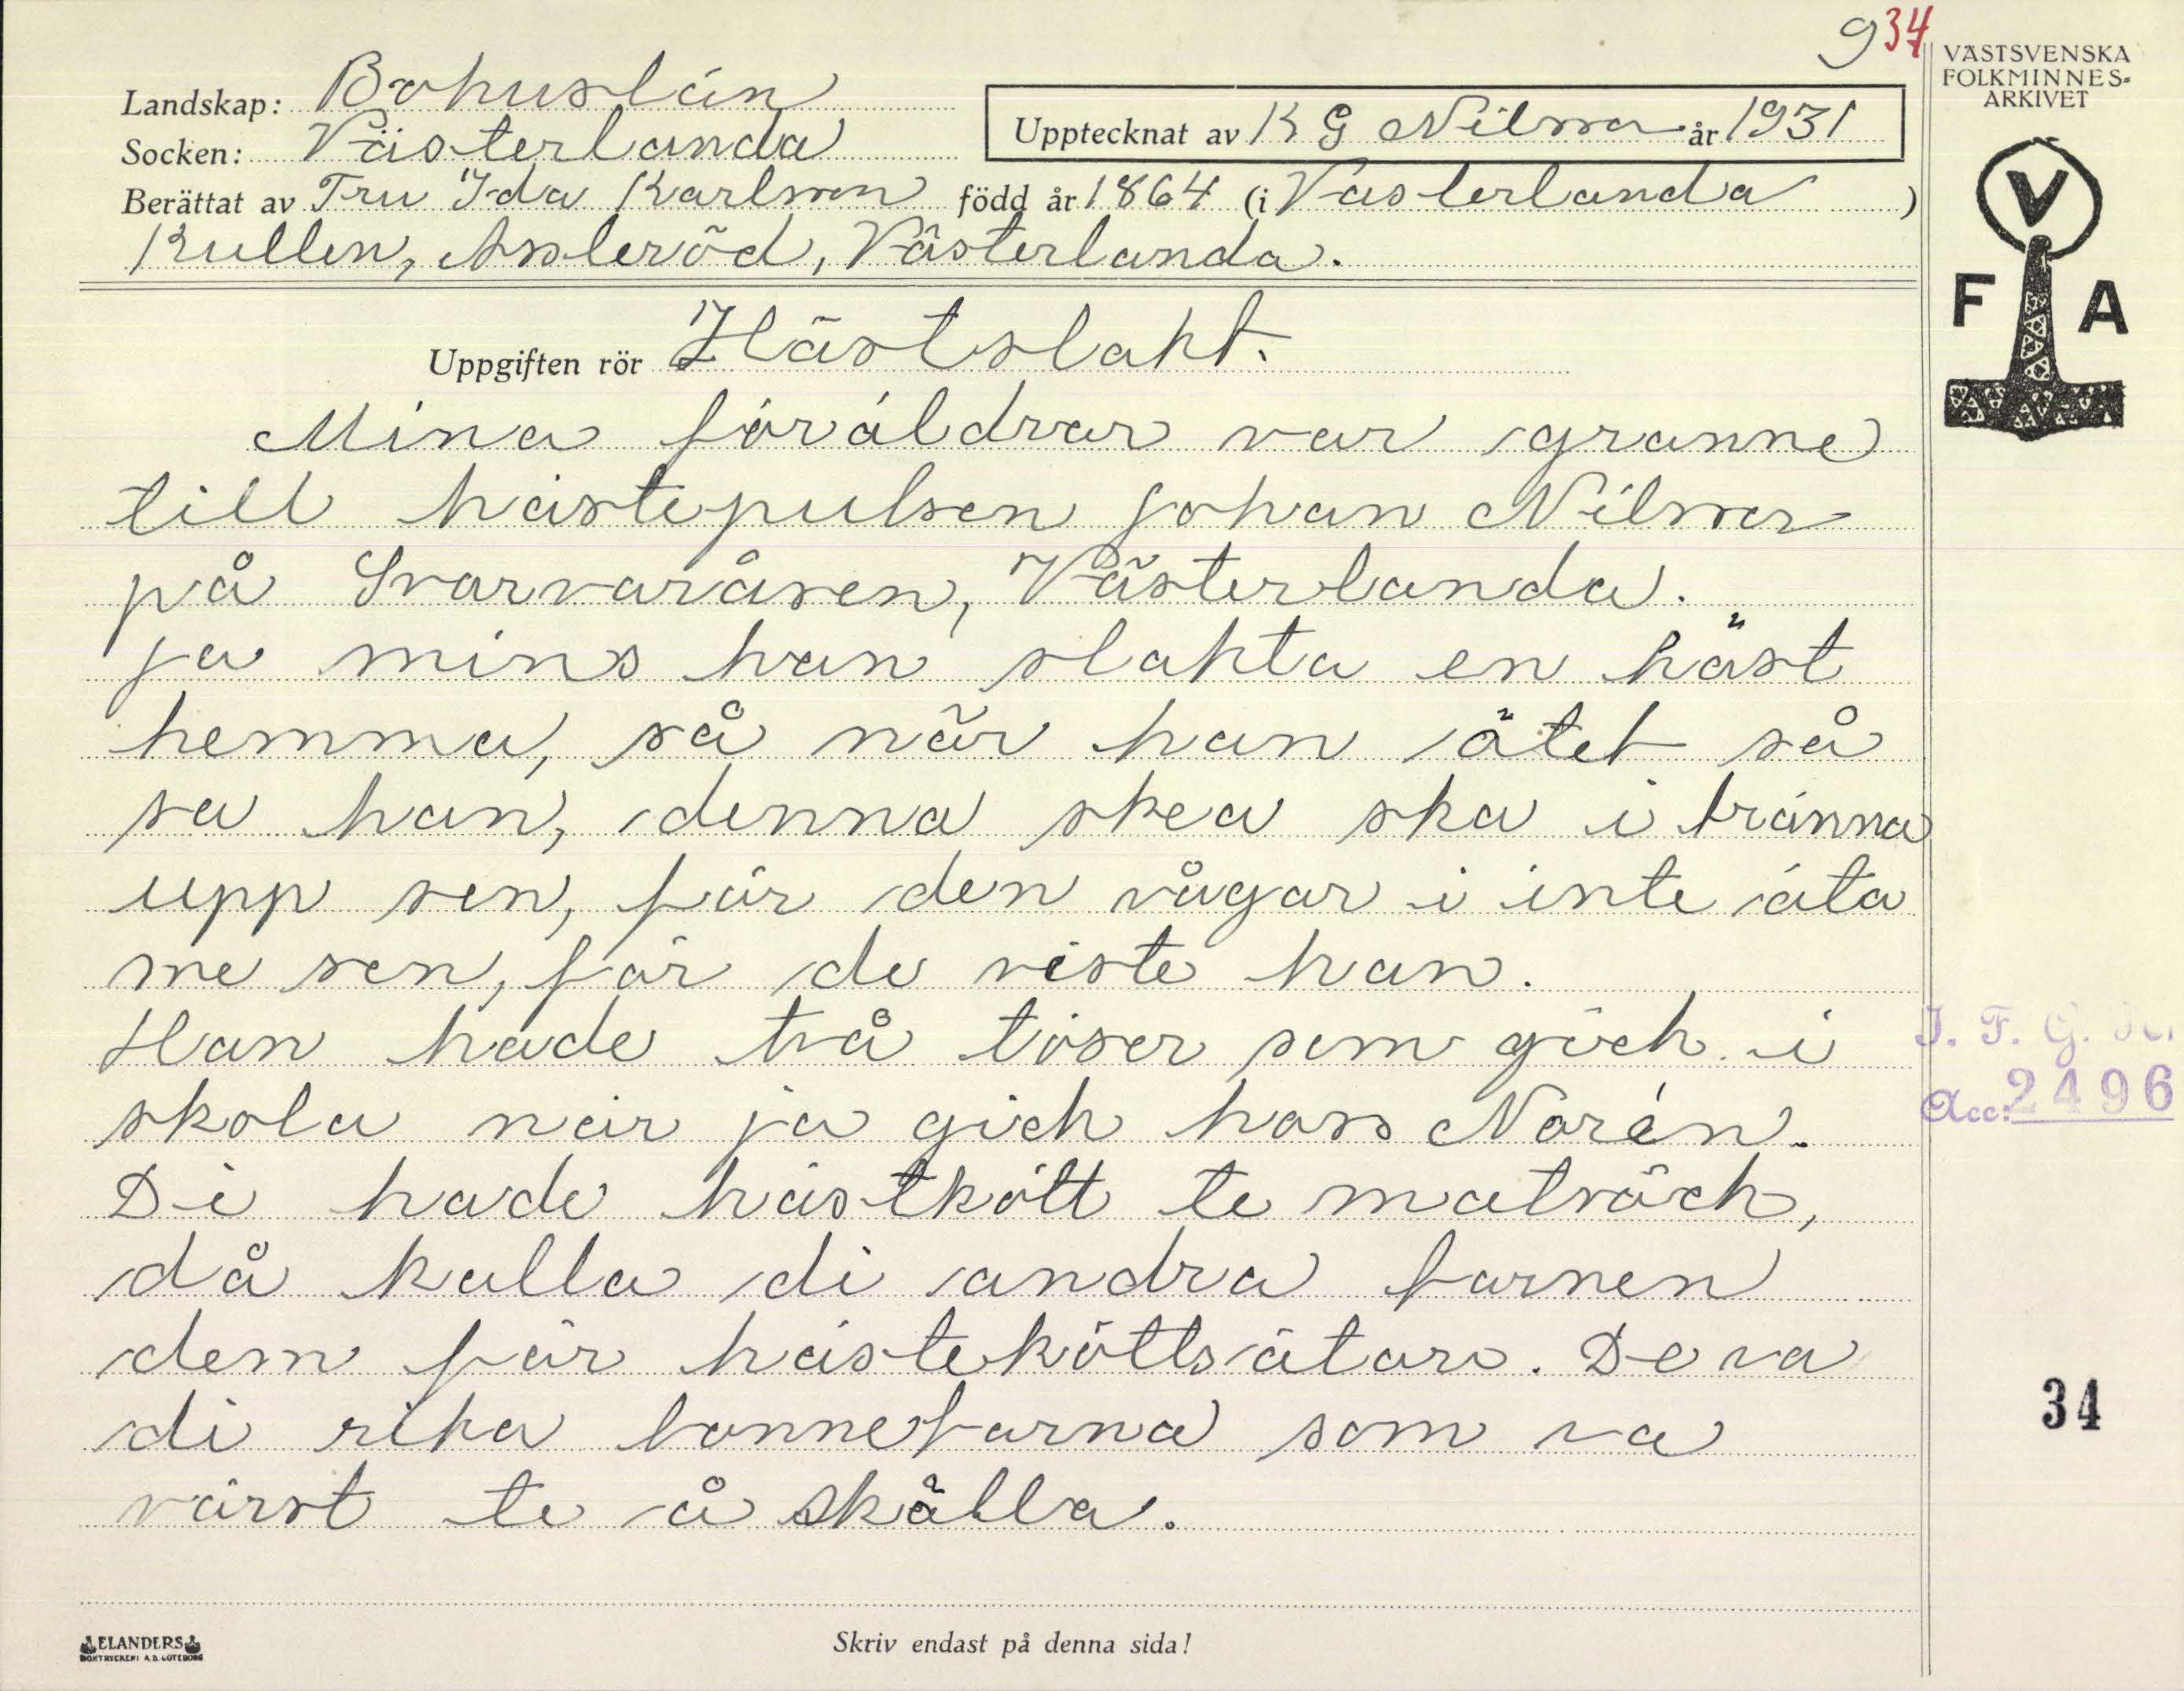 934
VÄSTSVENSKA
FOLKMINNES-
ARKIVET
Landskap: Bohuslän
Socken: Västerlanda
Upptecknat av K G Nilsson år 1931
Berättat av Fru Ida Karlsson född år 1864 (i Västerlanda )
Kullen, Assleröd, Västerlanda.
V
F A
Uppgiften rör Hästslakt.
Mina föräldrar var granne
till hästepulsen Johan Nilsson
på Svarvaråsen, Västerlanda.
Ja mins han slakta en häst
hemma, så när han ätet så
sa han, denna skea ska i bränna
upp sen, får den vågar i inte äta
me sen, får de viste han.
Han hade två töser som gich i
skola när ja gich hoss Norén.
Di hade hästkött te matsäck,
då kalla di andra barnen
dem får hästeköttsätare. De va
di rika bonnebarna som va
värst te å skälla.
I. F. G.
Acc: 2496
34
ELANDERS
BOKTRYCKERI A.B. GÖTEBORG
Skriv endast på denna sida!